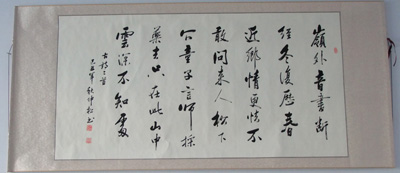 嶺外音書斷
经冬復歷春
近鄉情更怯不
敢問来人松下
问童子言師採
藥去只在此山中
雲深不知處
古詩二首